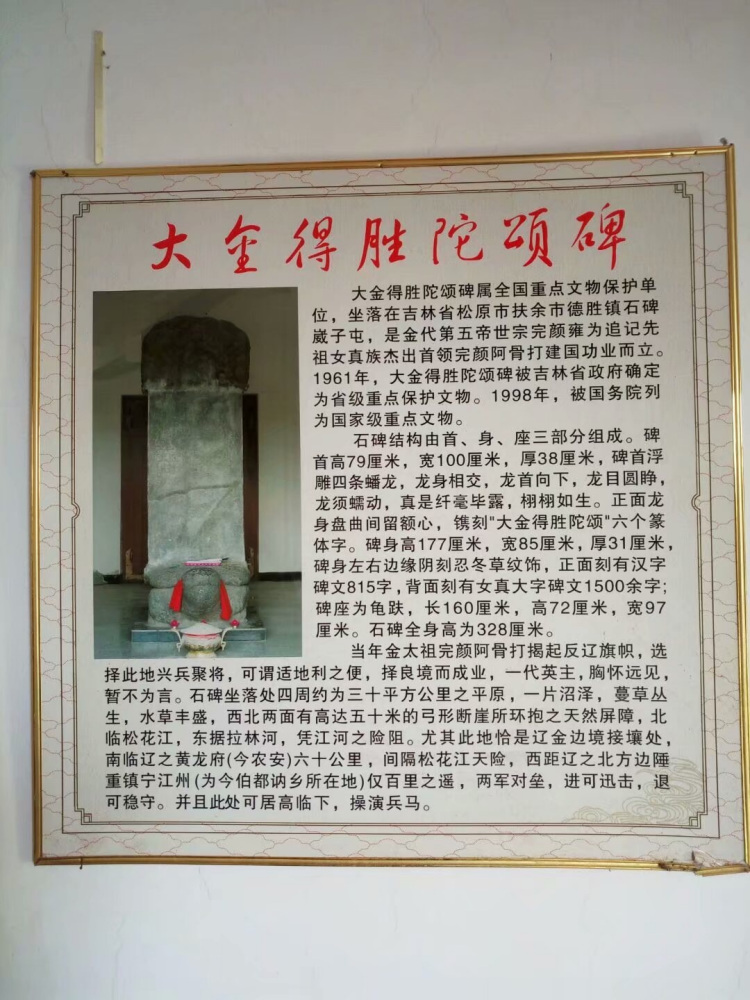 大金得胜陀颂碑
大金得胜陀颂碑属全国重点文物保护单
位，坐落在吉林省松原市扶余市德胜镇石碑
崴子屯，是金代第五帝世宗完颜雍为追记先
祖女真族杰出首领完颜阿骨打建国功业而立。
1961年，大金得胜陀颂碑被吉林省政府确定
为省级重点保护文物。1998年，被国务院列
为国家级重点文物。
石碑结构由首、身、座三部分组成。碑
首高79厘米，宽100厘米，厚38厘米，碑首浮
雕四条蟠龙，龙身相交，龙首向下，龙目圆睁，
龙须蠕动，真是纤毫毕露，栩栩如生。正面龙
身盘曲间留额心，镌刻"大金得胜陀颂"六个篆
体字。碑身高177厘米，宽85厘米，厚31厘米，
碑身左右边缘阴刻忍冬草纹饰，正面刻有汉字
碑文815字，背面刻有女真大字碑文1500余字；
碑座为龟趺，长160厘米，高72厘米，宽97
厘米。石碑全身高为328厘米。
当年金太祖完颜阿骨打揭起反辽旗帜，选
择此地兴兵聚将，可谓适地利之便，择良境而成业，一代英主，胸怀远见，
暂不为言。石碑坐落处四周约为三十平方公里之平原，一片沼泽，蔓草丛
生，水草丰盛，西北两面有高达五十米的弓形断崖所环抱之天然屏障，北
临松花江，东据拉林河，凭江河之险阻。尤其此地恰是辽金边境接壤处，
南临辽之黄龙府(今农安)六十公里，间隔松花江天险，西距辽之北方边陲
重镇宁江州(为今伯都讷乡所在地)仅百里之遥，两军对垒，进可迅击，退
可稳守。并且此处可居高临下，操演兵马。